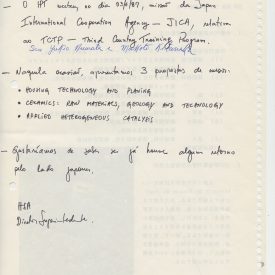 – O IPT recebeu, no dia 03/4/87, missão da Japan
International Cooperation Agency – JICA, relativa
ao TCTP – Third Country Training Program.
Seu Julio
– Naquela ocasião, apresentamos 3 propostas de cursos:
• HOUSING TECHNOLOGY AND PLANING
• CERAMICS: RAW MATERIALS, GEOLOGY AND TECHNOLOGY
• APPLIED HETEROGENEOUS CATALYSIS
– Gostaríamos de saber se já houve algum retorno
pelo lado japonês.
Diretor Superintendente.